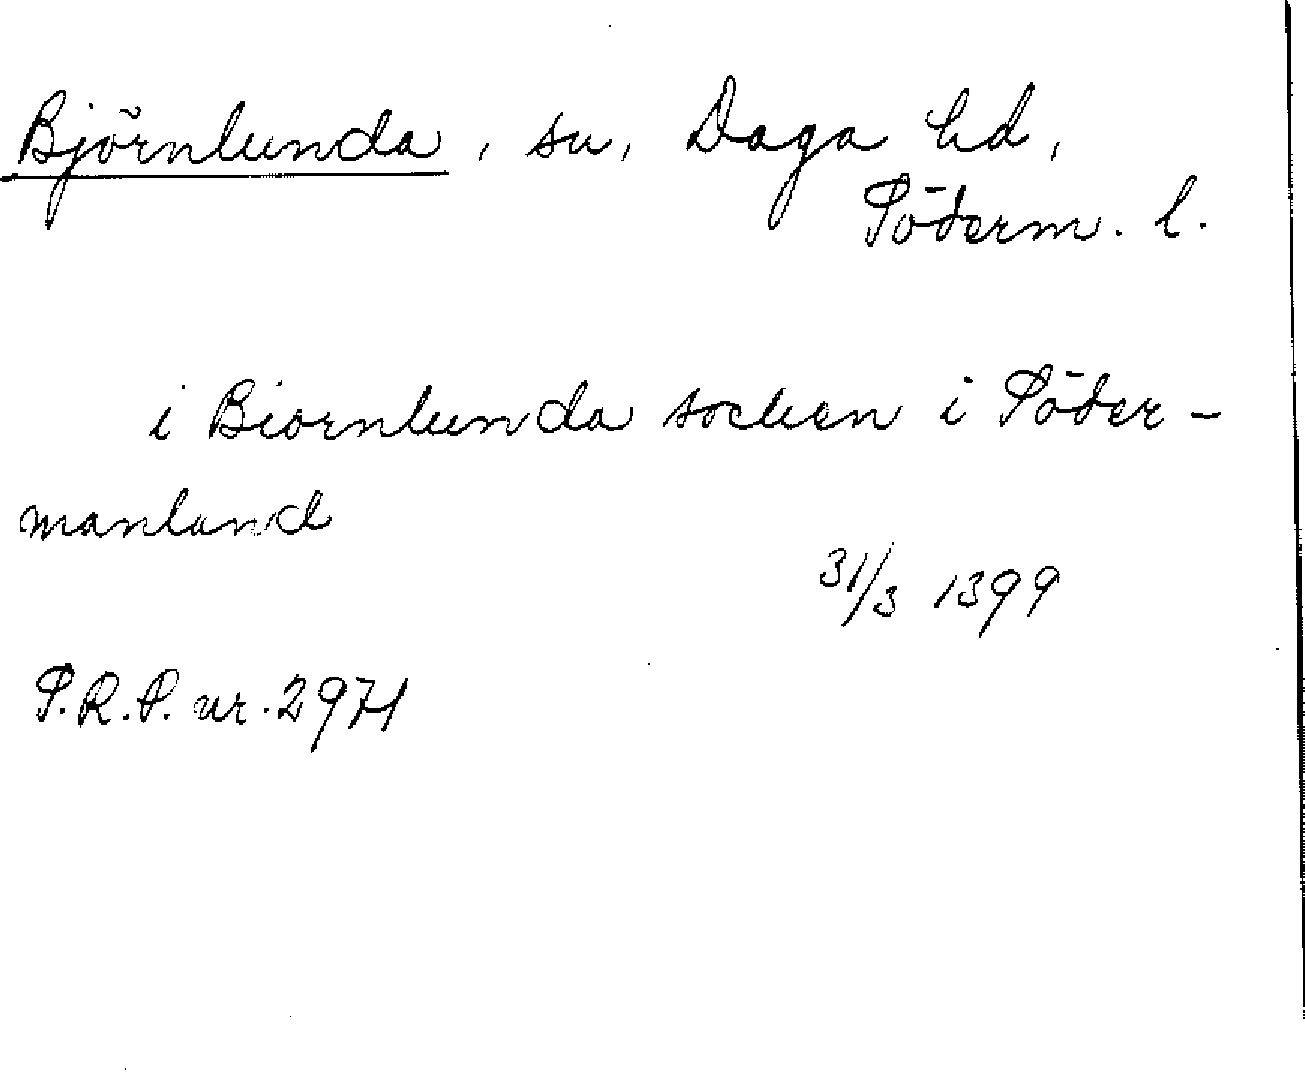 Björnlunda, sn, Daga hd,
Söderm. l.
i Biornlunda socken i Söder-
manland
31/3 1399
S.R.P. nr. 2971